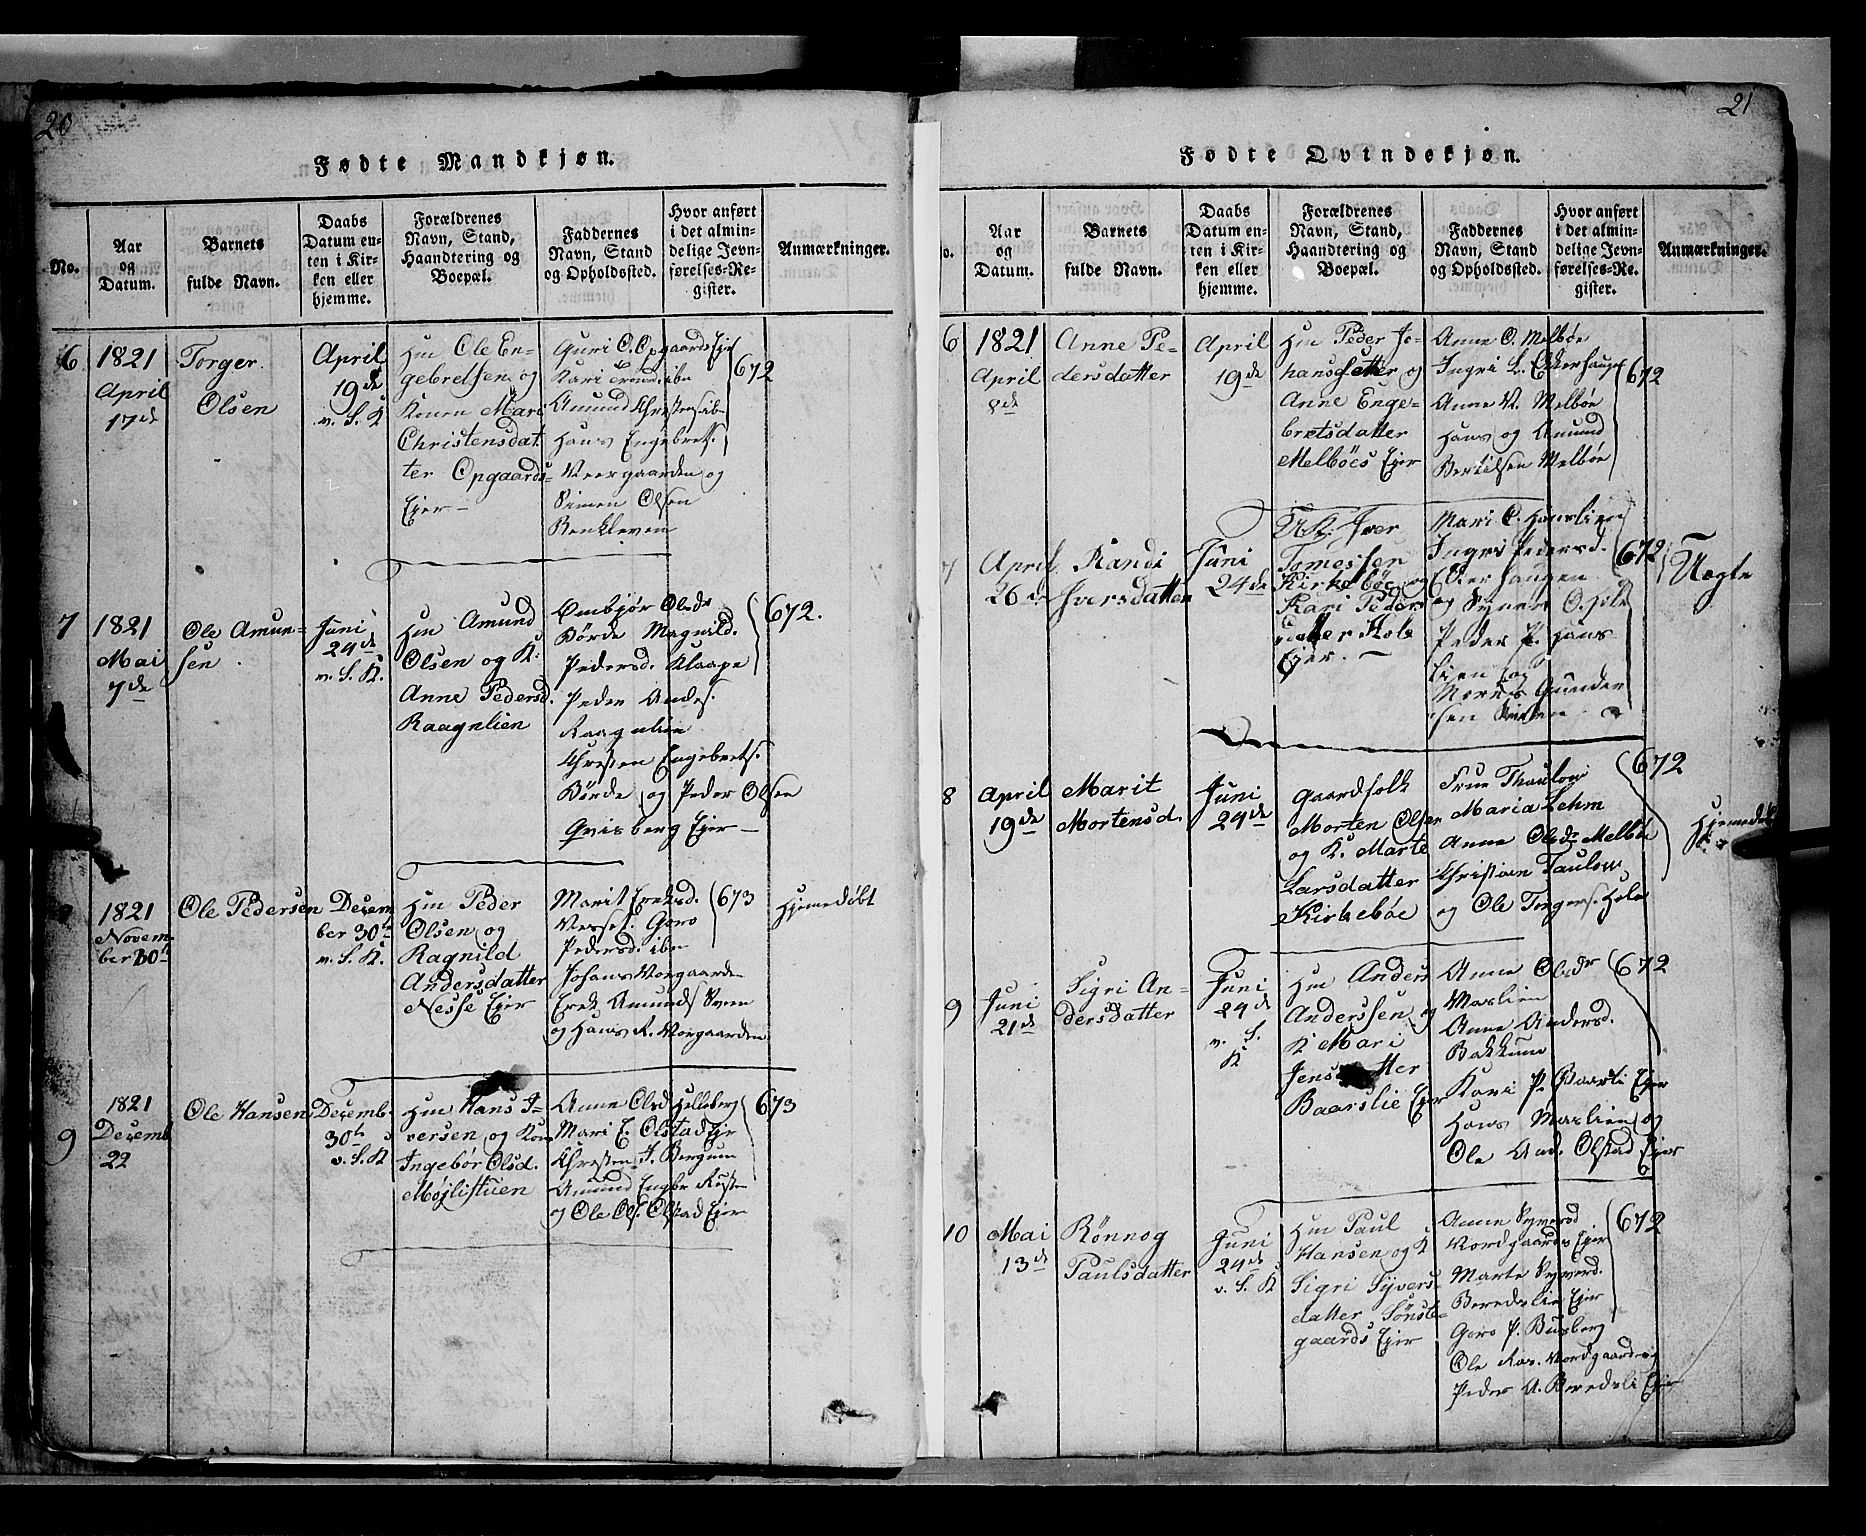 20
Fødte Mandkjøn.
No.
Aar
og
Datum.
Barnets
fulde Navn.
Daabs
Datum en-
ten i Kir-
ken eller
hjemme.
Forældrenes
Navn, Stand,
Haandtering og
Boepæl.
Faddernes
Navn, Stand
og Opholdssted.
Hvor anført
i det almin-
delige Jevn-
førelses-Re-
gister.
Anmærkninger.
6
1821
April
17de
Torger
Olsen
April
19de
v. S. K
Hm Ole En-
gebretsen og
Konen Mari
Christensdat
ter Opgaards-
Ejer
Guri O. Opgaards Ejer
Kari ibn
Amund Christens ib-
Hans Engebrets.
Veergaarden og
Simen Olsen
Benkleven
672
7
1821
Mai
7de
Ole Amun-
sen
Juni
24de
v. S. K.
Hm Amund
Olsen og K.
Anne Pedersd.
Raagnlien
Embjør Olsdr
Börde Magnild.
Pedersd. Klaape
Peder Anders.
Raagnlien
Christen Engebrets.
Börde og Peder Olsen
Qvisberg Ejer
672.
1821
Novem-
ber 30te
Ole Pedersen
Decem
ber 30te
v. S. K.
Hm Peder
Olsen og
Ragnild
Andersdatter
Nesse Ejer
Marit Ereksd.
Nesset. Goro
Pedersd. ibn
Johans Vorgaarde
Erek Amunds Sveen
og Hans R. Vorgaarden
673
Hjemedøbt
9
1821
Decemb
22
Ole Hansen
Decemb.
30te
v. S. K
Hm Hans I-
versen og Kone
Ingebör Olsd.
Mojlistuen
Anne Olsd Helleberg
Mari E. Olstad Ejer
Christen J. Bergum
Amund Engbr Ruste
og Ole Ols. Olstad Ejer
673
21
Fødte Qvindekjøn.
o.
Aar
og
Datum.
Barnets
fulde Navn.
Daabs
Datum en-
ten i Kir-
ken eller
hjemme.
Forældrenes
Navn, Stand,
Haandtering og
Boepæl.
Faddernes
Navn, Stand
og Opholdssted.
Hvor anført
i det almin-
delige Jevn-
førelses-Re-
gister.
Anmærkninger.
6
1821
April
8de
Anne Pe-
dersdatter
April
19de
Hm Peder Jo-
hansetter og
Anne Enge-
bretsdatter
Melböes Ejer
Anne O. Melböe
Ingri L. Ekkerhauge
Anne V. Melböe
Hans og Amund
Bertilsen Melböe
672
7
April
26de
Randi
Iversdatter
Juni
24de
UK. Iver
Tomessen
Kirkeböe og
Kari Peders
datter Hole
Ejer.
Mari O. Hanslien
Ingri Pedersd.
Ekerhaugen
og Synev O. Hole
Peder P. Hans
lien og
Mons Gunder
sen
672
Uægte
8
April
19de
Marit
Mortensd.
Juni
24de
Gaardfolk
Morten Olsen
og K. Marte
Larsdatter
Kirkeböe
Frue Thaulow
Maria Lehm
Anne Olsdr Melböe
Christian Taulow
og Ole Torgers. Hole
672
Hjemedøbt
9
Juni
21de
Sigri An-
dersdatter
Juni
24de
v. S.
K
Hm Anders
Anderssen og
K Mari
Jensdatter
Baarslie Ejer
Anne Olsdr
Maslien
Anne Andersd.
Bakkene
Kari P. Baarli Ejer
Hans Maslien og
Ole And. Olstad Ejer
672
10
Mai
13de
Rönnog
Paulsdatter
Juni
24de
v. S. K
Hm Paul
Hansen og K
Sigri Syvers
datter Sönste-
gaards Ejer
Anne Syversd
Nordgaards Ejer
Marte Syverd.
Beredslie Ejer
Goro P. Busberg
Ole Ras. Nordgaard og
Peder A. Beredsli Ejer
672